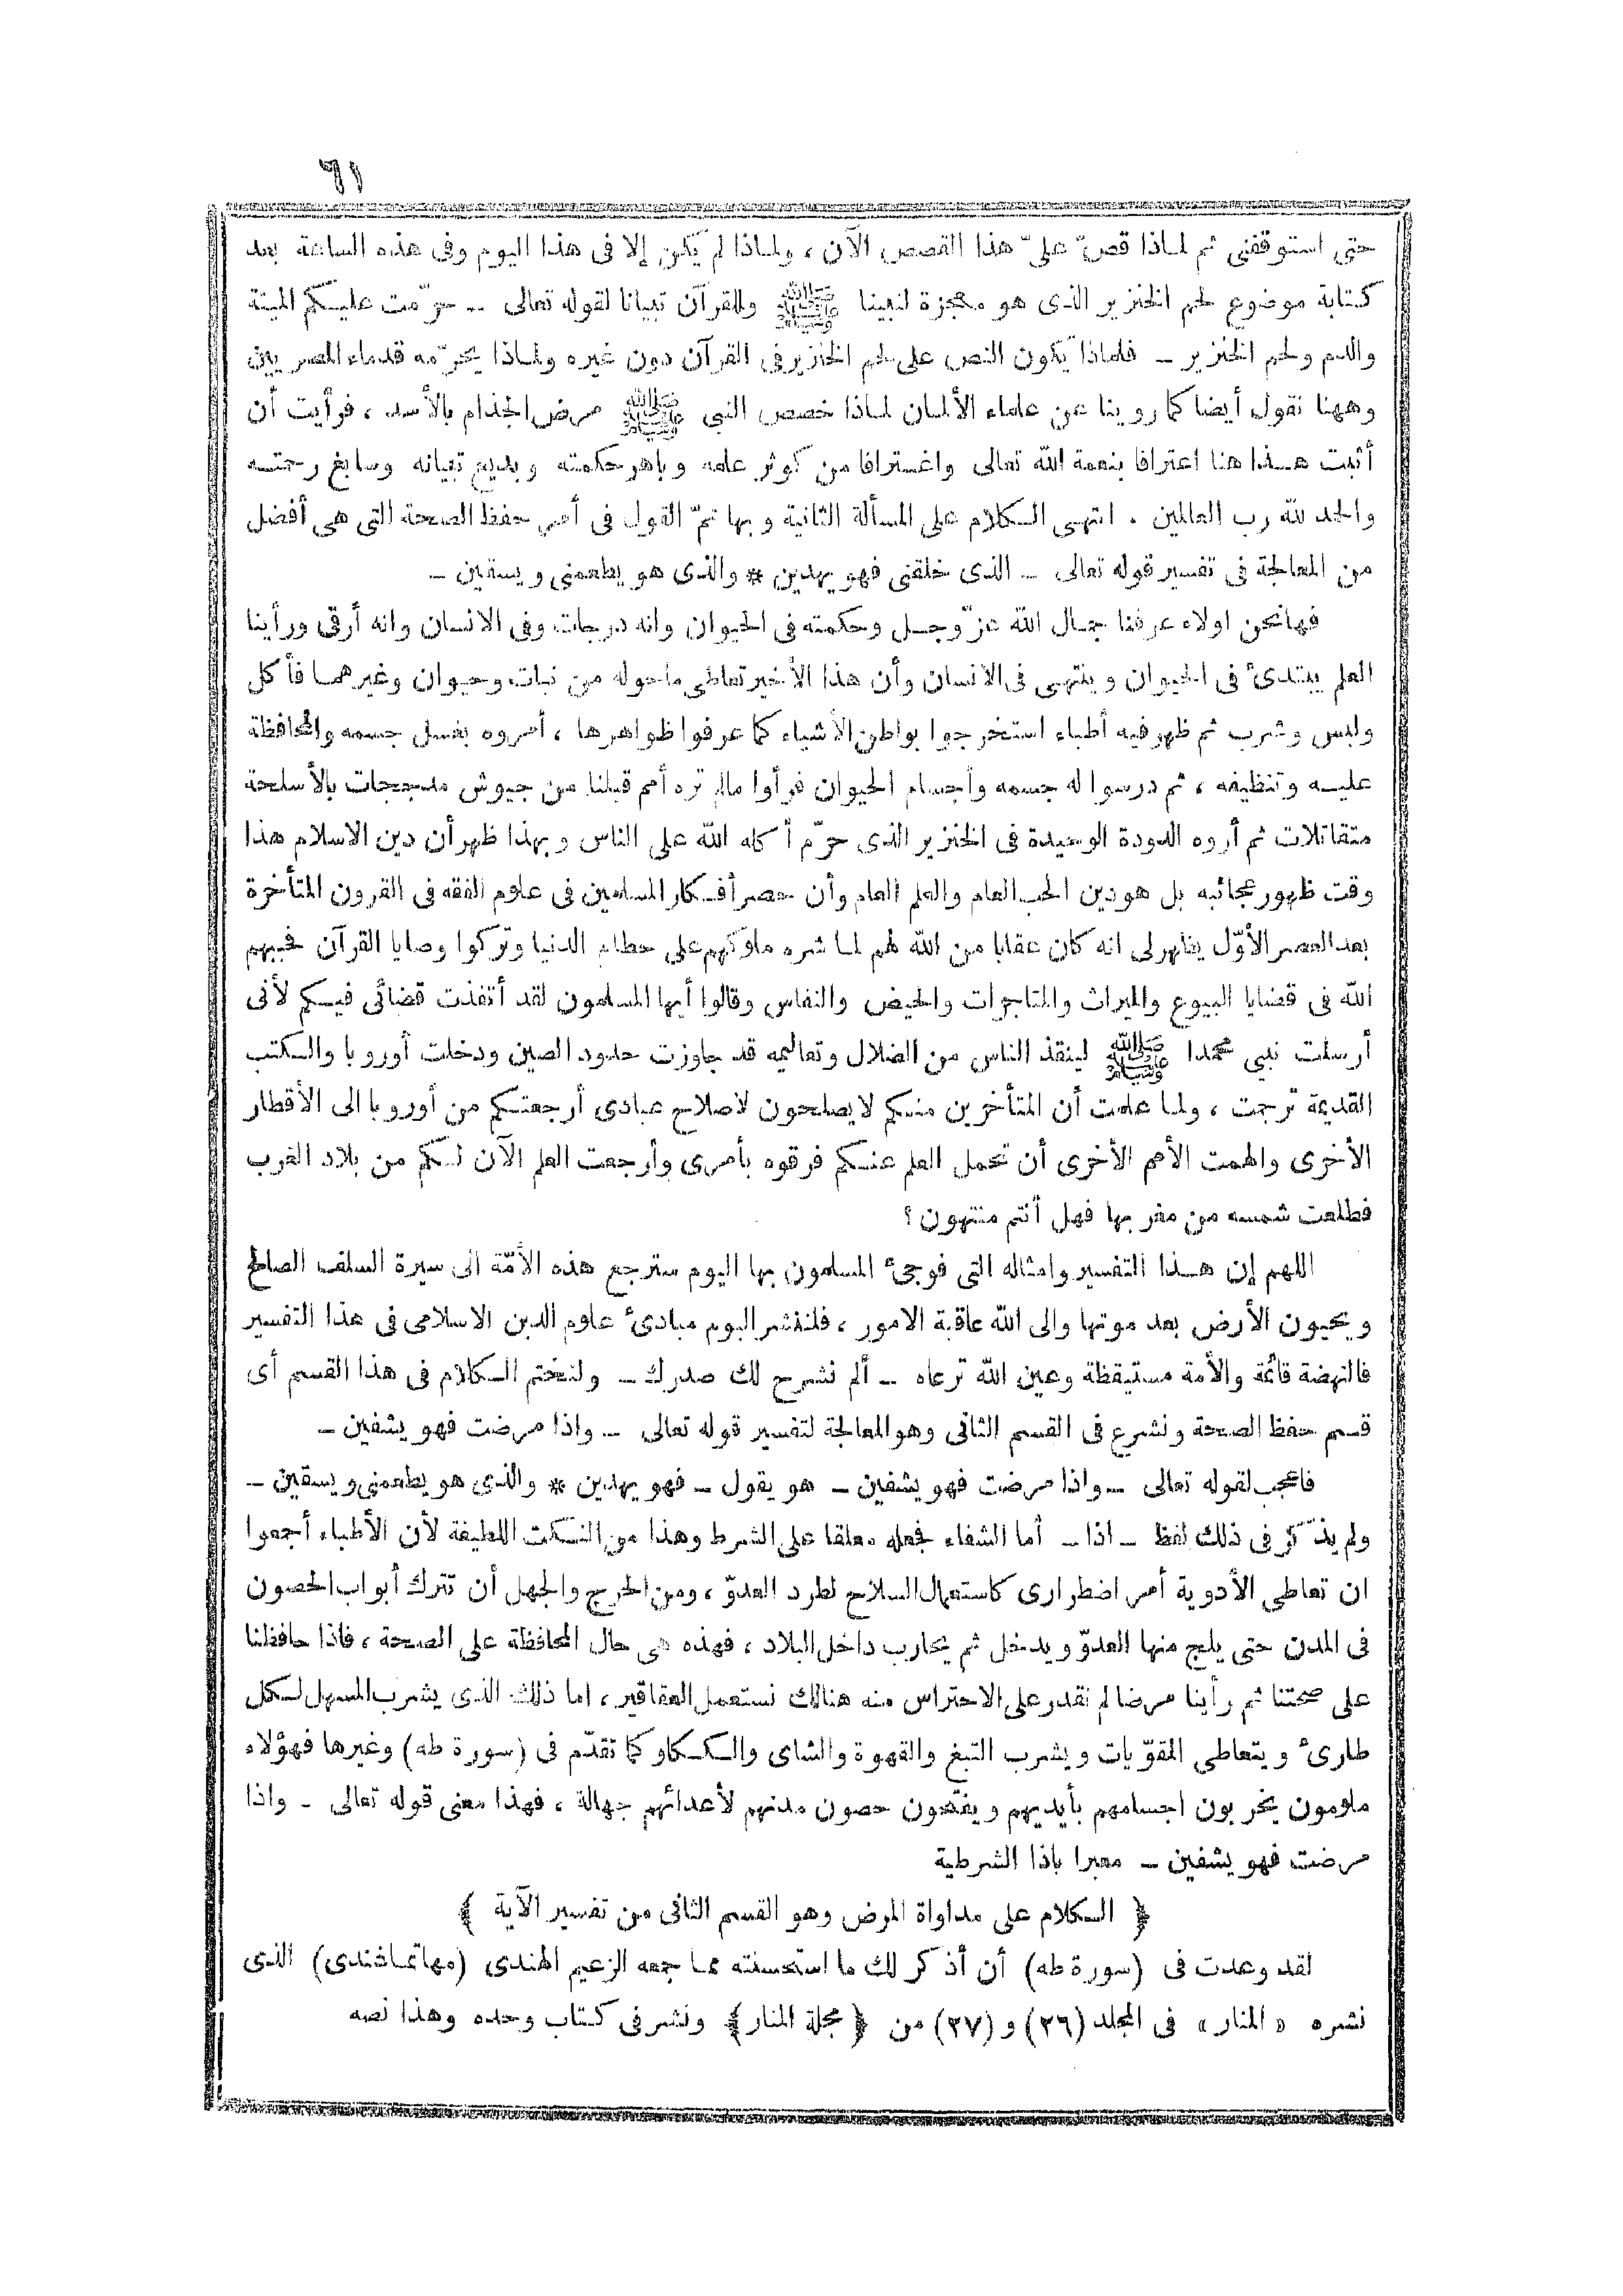 ٦١
حتى استوقفنى ثم لماذا قصّ علىّ هذا القصص الآن ، ولماذا لم يكن إلا فى هذا اليوم وفى هذه الساعة بعد
كتابة موضوع لحم الخنزير الذى هو معجزة لنبينا ﷺ وللقرآن تبيانا لقوله تعالى ـ حرّمت عليكم الميتة
والدم ولحم الخنزير ـ فلماذا يكون النص على لحم الخنزير فى القرآن دون غيره ولماذا يحرّمه قدماء المصريين
وههنا نقول أيضا كما روينا عن علماء الألمان لماذا خصص النبى ﷺ مرض الجذام بالأسد ، فرأيت أن
أثبت هذا هنا اعترافا بنعمة الله تعالى واغترافا من كوثر علمه وباهر حكمته وبديع تبيانه وسابغ رحمته
والحمد لله رب العالمين . انتهى الكلام على المسألة الثانية وبها تمّ القول فى أمر حفظ الصحة التى هى أفضل
من المعالجة فى تفسير قوله تعالى ـ الذى خلقنى فهو يهدين * والذى هو يطعمنى ويسقين ـ
فهانحن اولاء عرفنا جمال الله عزّ وجل وحكمته فى الحيوان وانه درجات وفى الانسان وانه أرقى ورأينا
العلم يبتدئ فى الحيوان وينتهى فى الانسان وأن هذا الأخير تعاطى ماحوله من نبات وحيوان وغيرهما فأكل
ولبس وشرب ثم ظهر فيه أطباء استخرجوا بواطن الأشياء كما عرفوا ظواهرها ، أمروه بغسل جسمه والمحافظة
عليه وتنظيفه ، ثم درسوا له جسمه وأجسام الحيوان فرأوا مالم تره أمم قبلنا من جيوش مدججات بالأسلحة
متقاتلات ثم أروه الدودة الوحيدة فى الخنزير الذى حرّم أكله الله على الناس وبهذا ظهر أن دين الاسلام هذا
وقت ظهور عجائبه بل هو دين الحب العام والعلم العام وأن حصر أفكار المسلمين فى علوم الفقه فى القرون المتأخرة
بعد العصر الأوّل يظهر لى انه كان عقابا من الله لهم لما شره ملوكهم على حطام الدنيا وتركوا وصايا القرآن فحبسهم
الله فى قضايا البيوع والميراث والمتاجرات والحيض والنفاس وقالوا أيها المسلمون لقد أنفذت قضائى فيكم لأنى
أرسلت نبي محمدا ﷺ لينقذ الناس من الضلال وتعاليمه قد جاوزت حدود الصين ودخلت أوروبا والكتب
القديمة ترجمت ، ولما علمت أن المتأخرين منكم لايصلحون لاصلاح عبادى أرجعتكم من أوروبا الى الأقطار
الأخرى والهمت الأمم الأخرى أن تحمل العلم عنكم فرقوه بأمرى وأرجعت العلم الآن لكم من بلاد الغرب
فطلعت شمسه من مغربها فهل أنتم منتهون ؟
اللهم إن هذا التفسير وامثاله التى فوجئ المسلمون بها اليوم سترجع هذه الأمّة الى سيرة السلف الصالح
ويحيون الأرض بعد موتها والى الله عاقبة الامور ، فلننشر اليوم مبادئ علوم الدين الاسلامى فى هذا التفسير
فالنهضة قائمة والأمة مستيقظة وعين الله ترعاه ـ ألم نشرح لك صدرك ـ ولنختم الكلام فى هذا القسم أى
قسم حفظ الصحة ونشرع فى القسم الثانى وهو المعالجة لتفسير قوله تعالى ـ واذا مرضت فهو يشفين ـ
فاعجب لقوله تعالى ـ واذا مرضت فهو يشفين ـ هو يقول ـ فهو يهدين * والذى هو يطعمنى ويسقين ـ
ولم يذكر فى ذلك لفظ ـ اذا ـ أما الشفاء فجعله معلقا على الشرط وهذا من النكت اللطيفة لأن الأطباء أجمعوا
ان تعاطى الأدوية أمر اضطرارى كاستعمال السلاح لطرد العدوّ ، ومن الحرج والجهل أن تترك أبواب الحصون
فى المدن حتى يلج منها العدوّ ويدخل ثم يحارب داخل البلاد ، فهذه هى حال المحافظة على الصحة ، فاذا حافظنا
على صحتنا ثم رأينا مرضا لم نقدر على الاحتراس منه هنالك نستعمل العقاقير ، اما ذلك الذى يشرب المسهل لكل
طارئ ويتعاطى المقوّيات ويشرب التبغ والقهوة والشاى والككاو كما تقدّم فى (سورة طه) وغيرها فهؤلاء
ملومون يخربون اجسامهم بأيديهم ويفتحون حصون مدنهم لأعدائهم جهالة ، فهذا معنى قوله تعالى ـ واذا
مرضت فهو يشفين ـ معبرا باذا الشرطية
﴿ الكلام على مداواة المرض وهو القسم الثانى من تفسير الآية ﴾
لقد وعدت فى (سورة طه) أن أذكر لك ما استحسنته مما جمعه الزعيم الهندى (مهاتماغندى) الذى
نشره « المنار » فى المجلد (٢٦) و (٢٧) من ﴿ مجلة المنار ﴾ ونشر فى كتاب وحده وهذا نصه